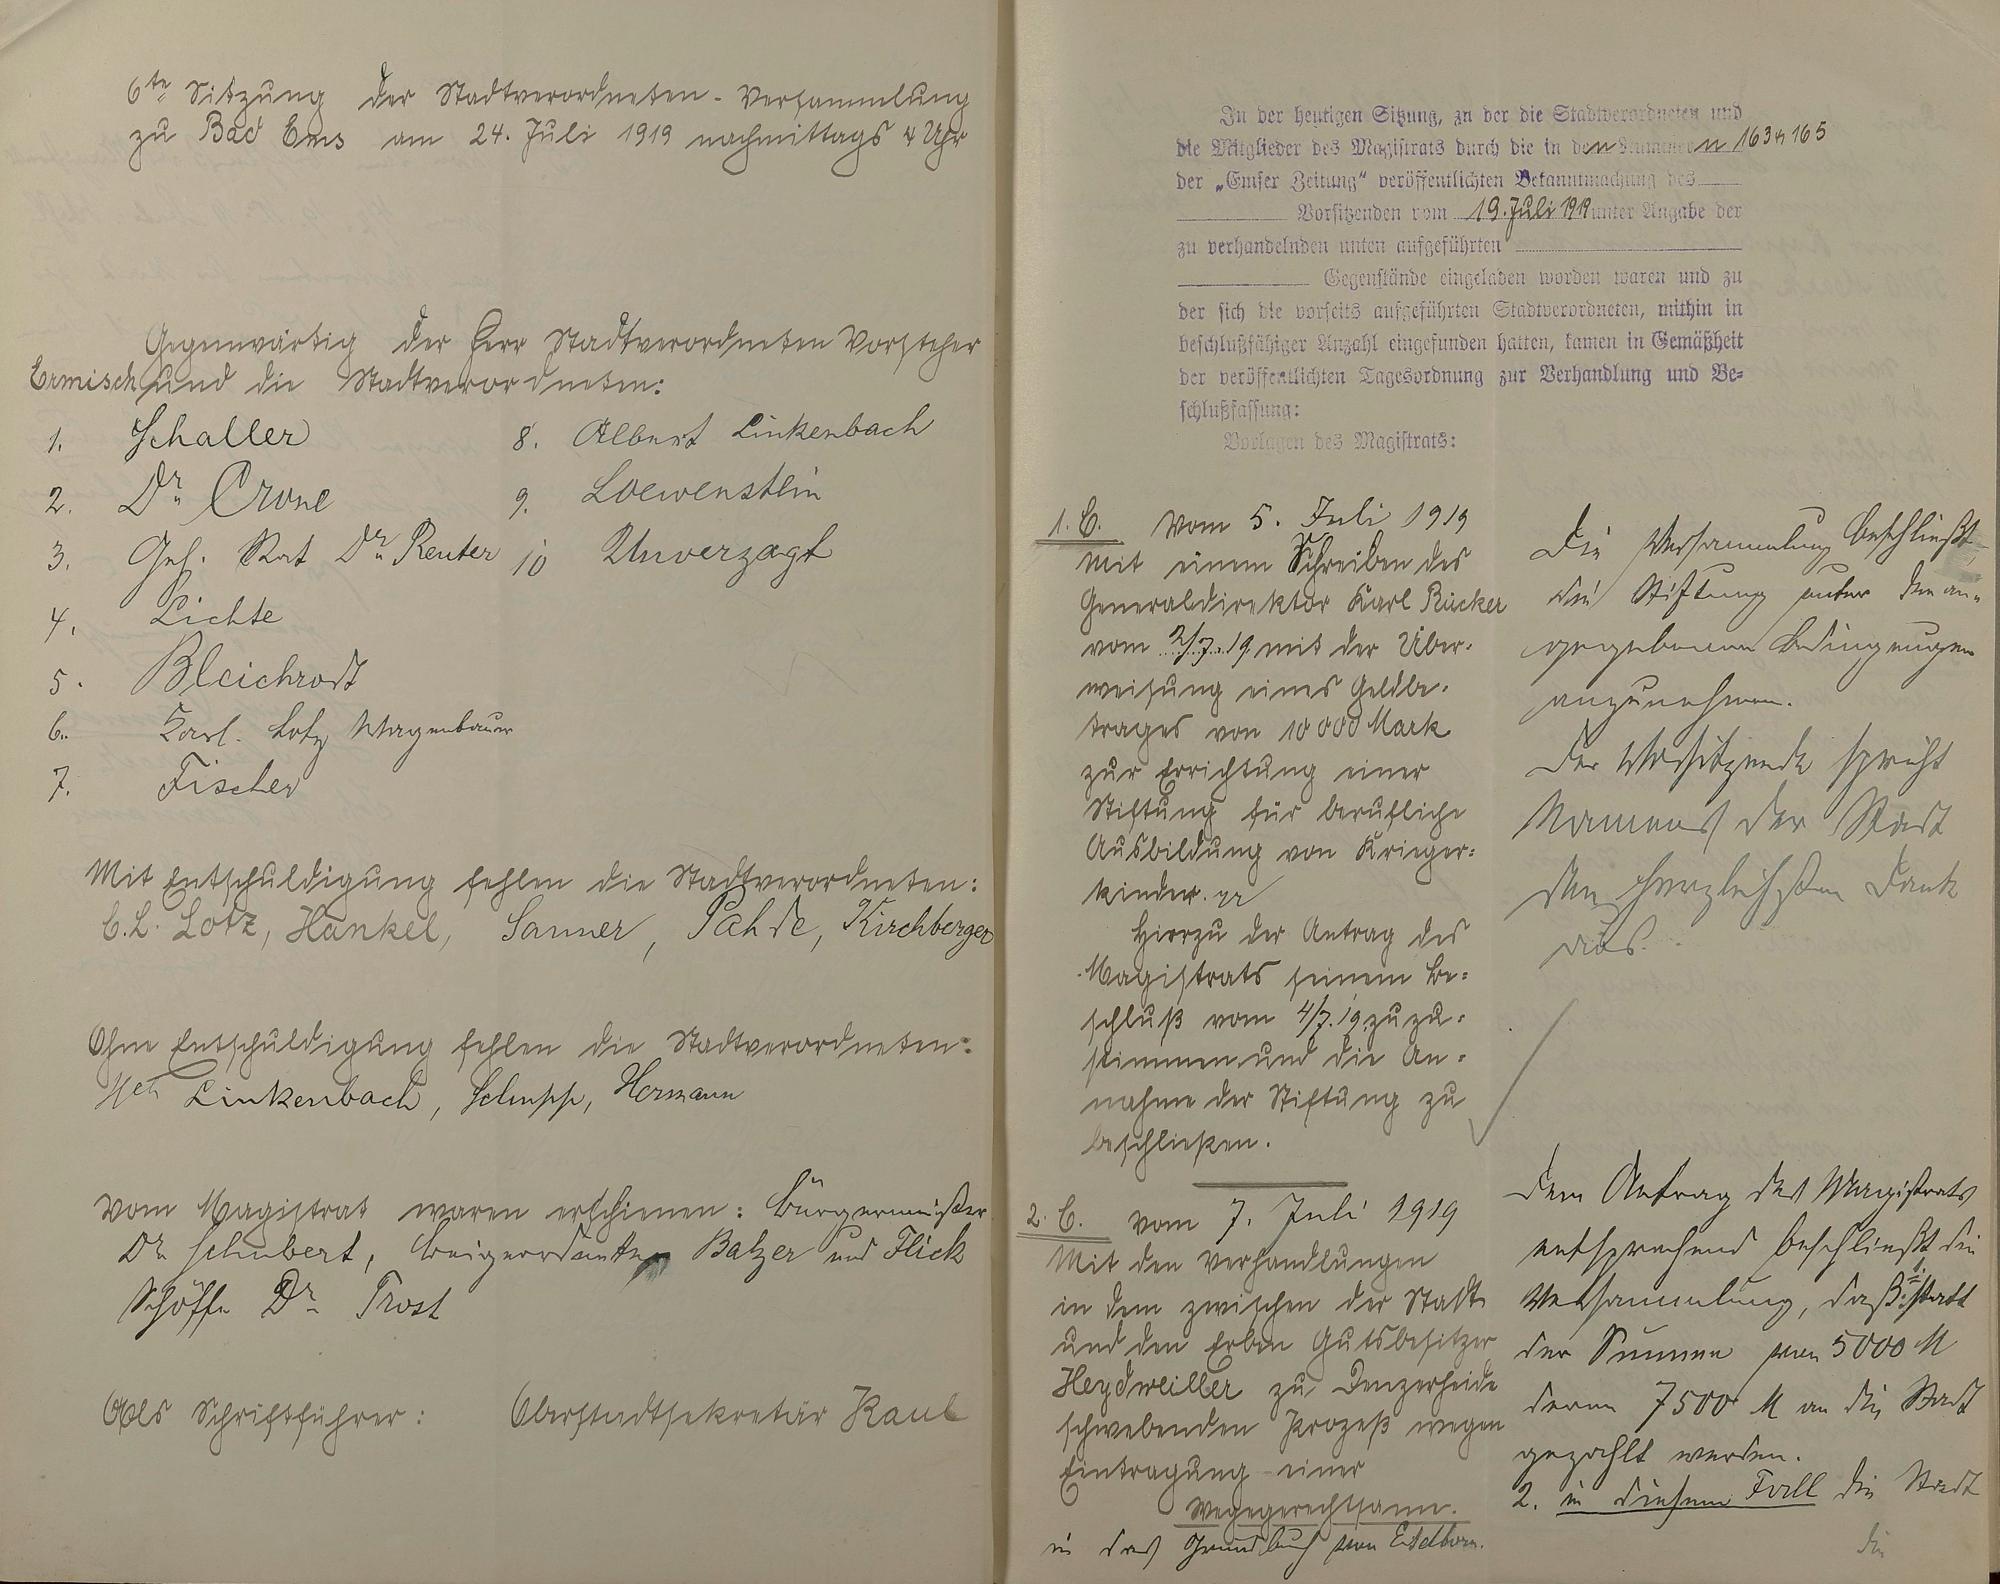 6te Sitzung der Stadtverordneten-Versammlung
zu Bad Ems am 24. Juli 1919 nachmittags 4 Uhr
Gegenwärtig der Herr Stadtverordneten Vorsteher
Ermisch und die Stadtverordneten:
1. Schaller
2. Dr. Crone
3. Geh. Rat Dr. Reuter
4. Lichte
5. Bleichrodt
6. Karl Lotz Wagenbauer
7. Fischer
8. Albert Linkenbach
9. Loewenstein
10 Unverzagt
Mit Entschuldigung fehlen die Stadtverordneten:
C.L. Lotz, Hankel, Sanner, Pahde, Kirchberger
Ohne Entschuldigung fehlen die Stadtverordneten:
Linkenbach, Schupp, Hermann
Vom Magistrat waren erschienen: Bürgermeister
Dr. Schubert, Beigeordneten Balzer und Flick
Schöffe Dr. Trost
Als Schriftführer: Oberstadtsekretär Kaul
In der heutigen Sitzung, zu der die Stadtverordneten und
die Mitglieder des Magistrats durch die in den Nummern 163 u 165
der „Emser Zeitung“ veröffentlichten Bekanntmachung des
Vorsitzenden vom 19. Juli 1919 unter Angabe der
zu verhandelnden unten aufgeführten
Gegenstände eingeladen worden waren und zu
der sich die vorseits aufgeführten Stadtverordneten, mithin in
beschlußfähiger Anzahl eingefunden hatten, kamen in Gemäßheit
der veröffentlichten Tagesordnung zur Verhandlung und Be-
schlußfassung:
Vorlagen des Magistrats:
1. C. Vom 5. Juli 1919
mit einem Schreiben des
Generaldirektor Karl Rücker
vom 2/7.19 mit der Über-
weisung eines Geldbe-
trages von 10000 Mark
zur Errichtung einer
Stiftung für berufliche
Ausbildung von Krieger-
kinder.
Hierzu der Antrag des
Magistrats seinem Be-
schluß vom 4/7.19 zuzu-
stimmen und die An-
nahme der Stiftung zu
beschließen.
2. C. vom 7. Juli 1919
Mit den Verhandlungen
in dem zwischen der Stadt
und den Erben Gutsbesitzer
Heydweiller zu Denzerheide
schwebenden Prozeß wegen
Eintragung einer
Wegegerechtsame.
in das Grundbuch von Eitelborn.
Die Versammlung beschließt,
die Stiftung unter den an-
gegebenen Bedingungen
anzunehmen.
Der Vorsitzende spricht
Namens der Stadt
den herzlichsten Dank
aus.
Dem Antrag des Magistrats
entsprechend beschließt die
Versammlung, daß 1. statt
der Summe von 5000 M
deren 7500 M an die Stadt
gezahlt werden.
2. in diesem Fall die Stadt
die